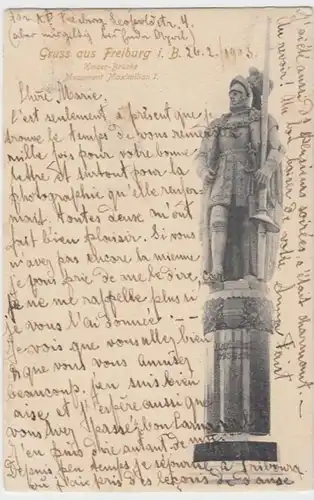 Gruss aus Freiburg i. B. 26.2.1903.
Kaiser-Brücke
Monument Maximilian I.
Chère Marie
C'est seulement à présent que je
trouve le temps de vous remercier
mille fois pour votre bonne
lettre et surtout pour la
photographie qu'elle renfer-
mait. Toutes deux m'ont
fait bien plaisir. Si vous
n'avez pas encore la mienne
je vous prie de me le dire, car
je ne me rappelle plus si
je vous l'ai donnée.
Je vois que vous allez bien
et que vous vous amusez
beaucoup, j'en suis bien
aise et j'espère aussi que
vous avez passé bon Carnaval
J'en puis dire autant de moi
Depuis peu de temps je séjourne à Fribourg
où j'ai pris des leçons
J'ai été aussi à plusieurs soirées c'était charmant.
Au revoir! Un bon baiser de votre